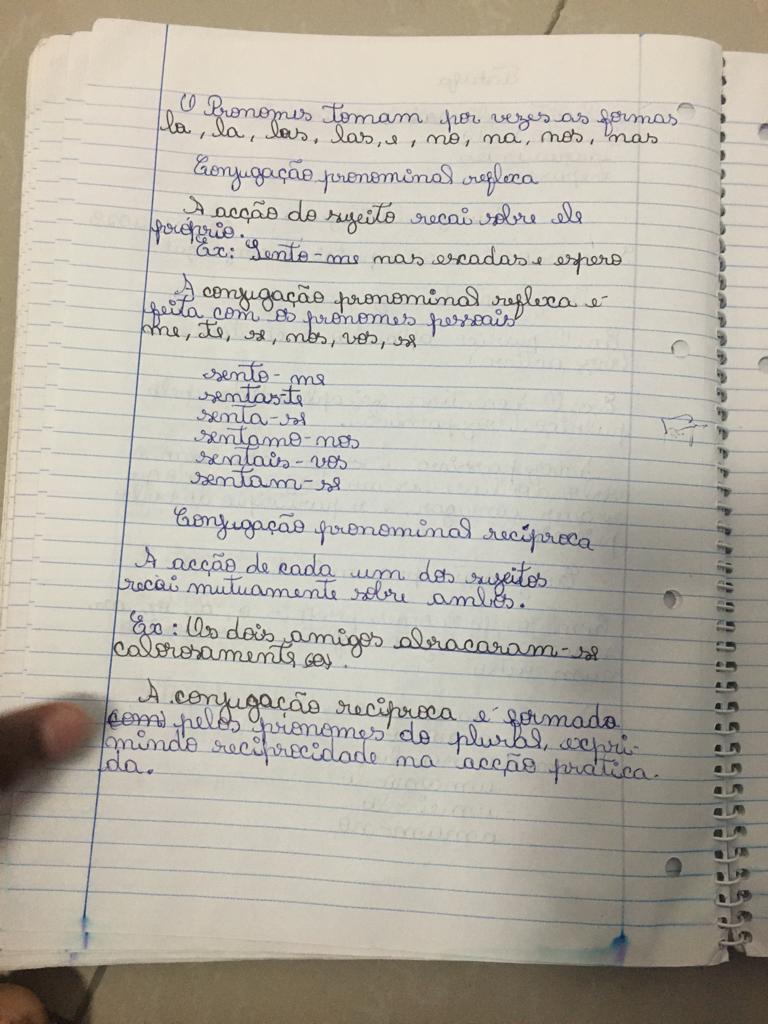 O Pronomes tomam por vezes as formas
lo, la, los, las, e, no, na, nos, nas
Conjugação pronominal reflexa
A acção do sujeito recai sobre ele
próprio.
Ex: Sento-me nas escadas e espero
A conjugação pronominal reflexa é
feita com os pronomes pessoais
me, te, se, nos, vos, se
sento-me
sentas-te
senta-se
sentamo-nos
sentais-vos
sentam-se
Conjugação pronominal recíproca
A acção de cada um dos sujeitos
recai mutuamente sobre ambos.
Ex: Os dois amigos abracaram-se
calorosamente.
A conjugação recíproca é formado
pelos pronomes do plural, expri-
mindo reciprocidade na acção pratica-
da.